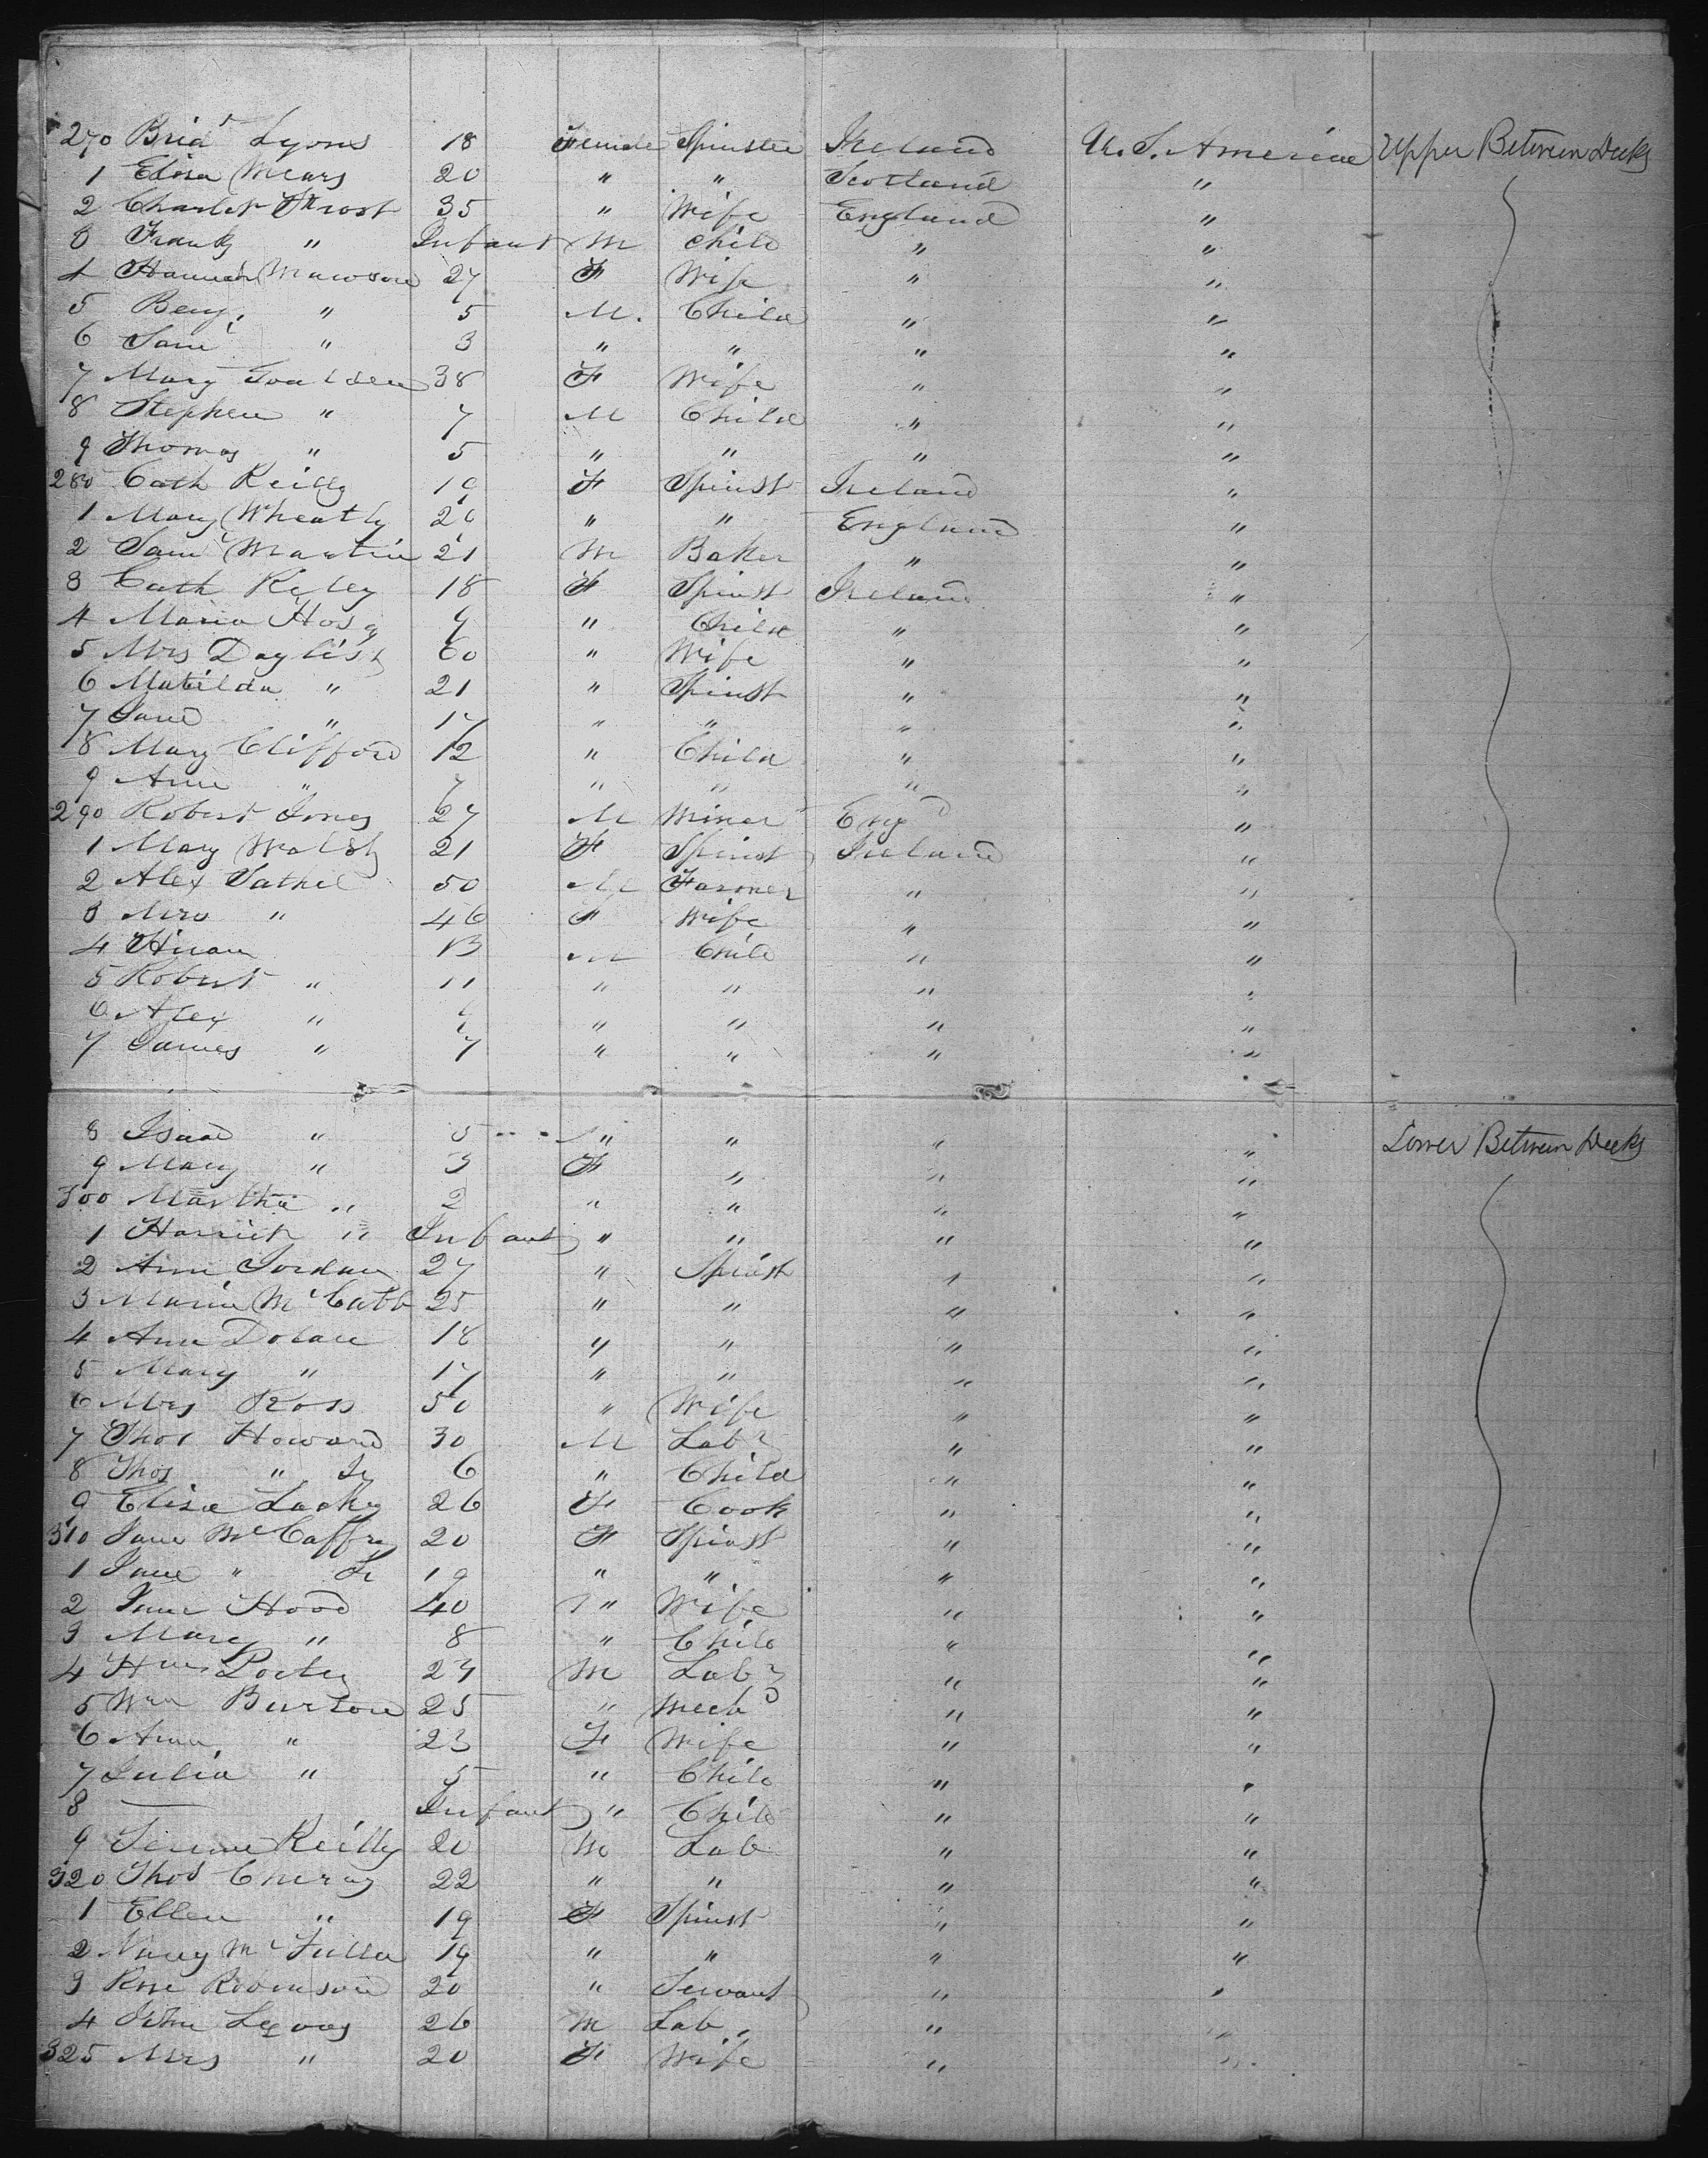 270 Brid't Lyons 18 Female Spinster Ireland U. S. America Upper Between Decks
1 Eliza Mears 20 " " Scotland "
2 Charlet Frost 35 " Wife England "
3 Frank " Infant M Child " "
4 Hannah Mawson 27 F Wife " "
5 Benj. " 5 M. Child " "
6 Saml " 3 " " " "
7 Mary 38 F Wife " "
8 Stephen " 7 M Child " "
9 Thomas " 5 " " " "
280 Cath Reilly 19 F Spinst Ireland "
1 Mary Wheatly " " England "
2 Saml Martin 21 M Baker " "
3 Cath Reley 18 F Spinst Ireland "
4 Maria 9 " Child " "
5 Mrs Daglish 60 " Wife " "
6 Matilda " 21 " Spinst " "
7 Jane " 17 " " " "
8 Mary Clifford 12 " Child " "
9 Ann " 7 " " " "
290 Robert Jones 27 M Miner Eng'd "
1 Mary Walsh 21 F Spinst Ireland "
2 Alex 50 M Farmer " "
3 Mrs " 46 F Wife " "
4 Hiram 13 M Child " "
5 Robert " 11 " " " "
6 Alex " " " " "
7 James " 7 " " " "
8 Isaac " 5 " " " " Lower Between Decks
9 Mary " 3 F " " "
300 Martha " 2 " " " "
1 Harriet " Infant " " " "
2 Ann Jordan 27 " Spinst " "
3 Maria McCabb 25 " " " "
4 Ann Dolan 18 " " " "
5 Mary " 17 " " " "
6 Mrs Ross 50 " Wife " "
7 Thos Howard 30 M Labr " "
8 Thos " Jr 6 " Child " "
9 Eliza Lacky 26 F Cook " "
310 Jane McCaffry 20 F Spinst " "
1 Jane " Jr 19 " " " "
2 Jane Hood 40 " Wife " "
3 Mary " 8 " Child " "
4 M Labr " "
5 Wm Burton 25 " Mech " "
6 Ann " 23 F Wife " "
7 Julia " 5 " Child " "
8 — Infant " Child " "
9 Reilly 20 M Lab " "
320 Thos 22 " " " "
1 Ellen " 19 F Spinst " "
2 Nancy 19 " " " "
3 Rose Robinson 20 " Servant " "
4 John 26 M Lab. " "
325 Mrs " 20 F Wife " "